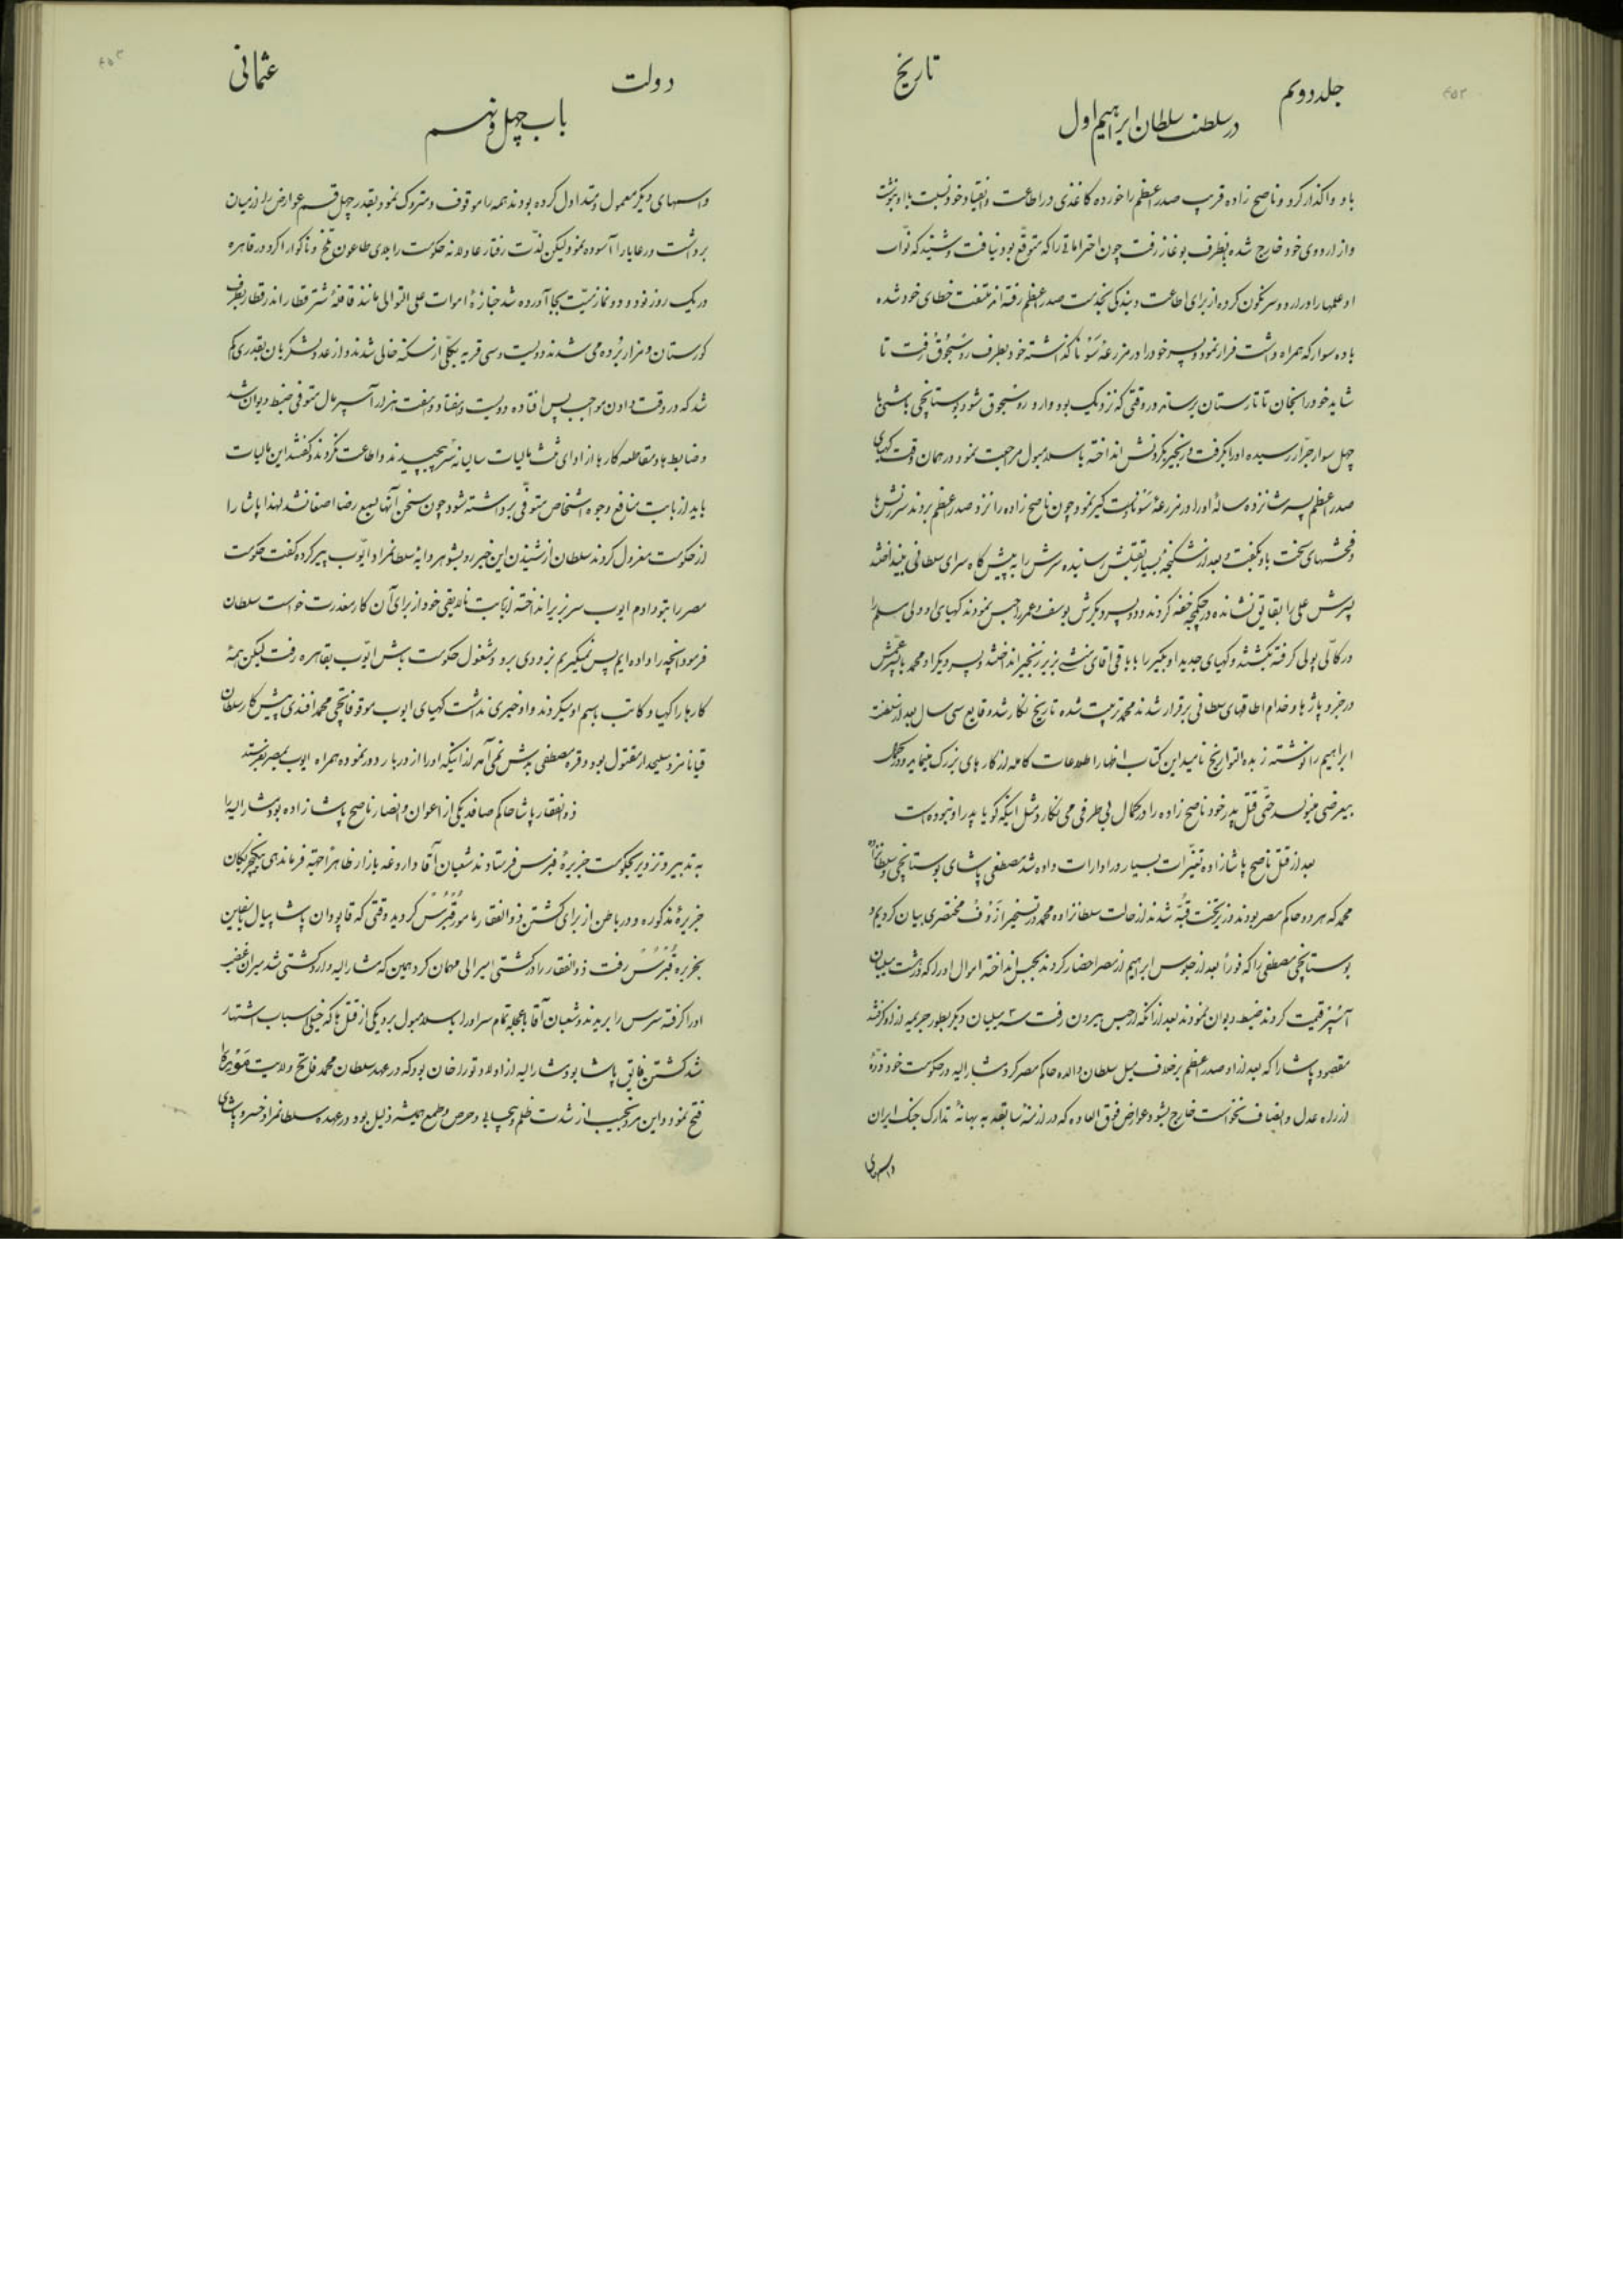 جلد دویم
تاریخ
در سلطنت سلطان ابراهیم اول
باو واگذار کرد و ناصح زاده فریب صدر اعظم را خورده کاغذی در اطاعت و انقیاد خود نسبت باو نوشت
و از اردوی خود خارج شده بطرف بوغاز رفت چون احتراماتی را که متوقع بود نیافت و شنید که نواب
او علمها را در اردو سرنگون کرده از برای اطاعت و بندگی بخدمت صدر اعظم رفته اند ملتفت خطای خود شده
با ده سوار که همراه داشت فرار نمود و پسر خود را در مزرعه گذاشته خود بطرف روسجوق رفت تا
شاید خود را از آنجا به تاتارستان برساند در وقتی که نزدیک بود وارد روسجوق شود بوستانچی باشی با
چهل سوار جرار رسیده او را بگرفت و زنجیر بگردنش انداخته باسلامبول مراجعت نمود در همان وقت کهیای
صدر اعظم پسر شانزده ساله او را در مزرعه دستگیر نمود چون ناصح زاده را نزد صدر اعظم بردند سرزنش ها
و فحشهای سخت باو بگفت و بعد از شکنجه بسیار بقتلش رسانیده سرش را به پیشگاه سرای سلطانی بینداختند
پسرش علی را بقایق نشانده در چکمجه خفه کردند و دو پسر دیگرش یوسف و عمر را حبس نمودند کهیای او ولی مسلم را
پولی گرفته بکشتند و کهیای جدید او بکیر را با باقی آقای منشی بزیر زنجیر انداختند و پسر دیگر او محمد با پسر عمش
در جزو پاژها و خدام اطاقهای سلطانی برقرار شدند محمد تربیت شده تاریخ نگار شد و قایع سی سال بعد از سلطنت
ابراهیم را نوشته زبده التواریخ نامید این کتاب اظهار اطلاعات کامله از کارهای بزرگ مینماید و در کمال
بیغرضی مینویسد حتی قتل پدر خود ناصح زاده را در کمال بی طرفی می نگارد مثل اینکه گویا پدر او نبوده است
بعد از قتل ناصح پاشا زاده تغییرات بسیار در ادارات داده شد مصطفی پاشای بوستانچی و سلطانزاده
محمد که هر دو حاکم مصر بودند وزیر تحت قبه شدند از حالت سلطانزاده محمد در تسخیر ازوف مختصری بیان کردیم و
بوستانچی مصطفی را که فوراً بعد از جلوس ابراهیم از مصر احضار کردند بحبس انداخته اموال او را که هشت میلیان
آسپر قیمت کردند ضبط دیوان نمودند بعد از آنکه از حبس بیرون رفت سه میلیان دیگر بطور جریمه از او گرفتند
مقصود پاشا را که بعد از او صدر اعظم برخلاف میل سلطان والده حاکم مصر کرد مشارالیه در حکومت خود ذره
از راه عدل و انصاف نخواست خارج بشود عوارض فوق العاده که در ازمنه سابقه به بهانه تدارک جنگ ایران
واسمهای
دولت
عثمانی
باب چهل و نهم
واسمهای دیگر معمول و متداول کرده بودند همه را موقوف و متروک نمود بقدر چهل قسم عوارض را از میان
برداشت و رعایا را آسوده نمود لیکن لذت رفتار عادلانه حکومت را بلای طاعون تلخ و ناگوار کرد در قاهره
در یک روز نود و دو نماز میت بجا آورده شد جنازه اموات علی التوالی مانند قافله شتر قطار اندر قطار بطرف
گورستان و مزار برده می شدند دویست و سی قریه بکلی از سکنه خالی شدند و از عدد لشکریان بقدری کم
شد که در وقت دادن مواجب پس افتاده دویست و هفتاد و هفت هزار آسپر مال متوفی ضبط دیوان شد
و ضابط ها و مقاطعه کارها از ادای مالیات سالیانه سر پیچیدند و اطاعت نکردند و گفتند این مالیات
باید از بابت منافع وجوه اشخاص متوفی برداشته شود چون سخن آنها بسمع رضا اصغا نشد لهذا پاشا را
از حکومت معزول کردند سلطان از شنیدن این خبر رو بشوهر دایه سلطان مراد ایوب پیر کرده گفت حکومت
مصر را بتو دادم ایوب سر بزیر انداخته از بابت نالایقی خود از برای آن کار معذرت خواست سلطان
فرمود آنچه را داده ایم پس نمیگیریم بزودی برو و مشغول حکومت باش ایوب بقاهره رفت لیکن همه
کارها را کهیا و کاتب باسم او میکردند و او خبری نداشت کهیای ایوب موقوفاتچی محمد افندی پیشکار سلطان
قیا نامزد سلیحدار مقتول بود و قره مصطفی بدش نمی آمد از اینکه او را از دربار دور نموده همراه ایوب بمصر بفرستند
ذوالفقار پاشا حاکم صافد یکی از اعوان و انصار ناصح پاشا زاده بود مشارالیه را
به تدبیر و تزویر بحکومت جزیره قبرس فرستادند شعبان آقا داروغه بازار ظاهراً بجهة فرماندهی ینگچریگان
جزیره مذکوره و در باطن از برای کشتن ذوالفقار مامور قبرس گردید وقتی که قاپودان پاشا پیاله باین
بجزیره قبرس رفت ذوالفقار را در کشتی امیرالی مهمان کرد همین که مشارالیه وارد کشتی شد میران غضب
او را گرفته سرش را بریدند و شعبان آقا با عجله تمام سر او را باسلامبول برد یکی از قتل ها که خیلی اسباب اشتهار
شد کشتن فایق پاشا بود مشارالیه از اولاد تورا خان بود که در عهد سلطان محمد فاتح ولایت موره را
فتح نمود و این مرد نجیب از شدت ظلم و بیحیائی و حرص و طمع همیشه ذلیل بود در عهد سلطان مراد خسرو پاشای